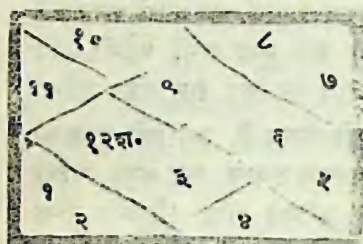 १० ८
११ ९ ७
१२श० ६
१ ३ ५
२ ४